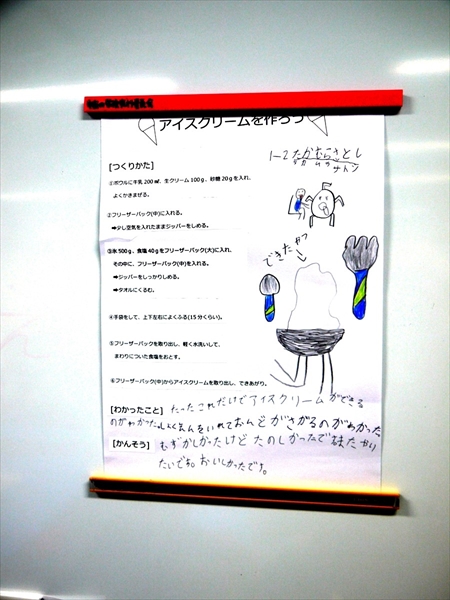 アイスクリームを作ろう
1-2 たかむらさとし
タカムラサトシ
[つくりかた]
①ボウルに牛乳 200㎖、生クリーム 100g、砂糖 20gを入れ、
よくかきまぜる。
②フリーザーパック(中)に入れる。
➡少し空気を入れたままジッパーをしめる。
③氷 500g、食塩 40gをフリーザーパック(大)に入れ、
その中に、フリーザーパック(中)を入れる。
➡ジッパーをしっかりしめる。
➡タオルにくるむ。
できたやつ
④手袋をして、上下左右によくふる(15分くらい)。
⑤フリーザーパックを取り出し、軽く水洗いして、
まわりについた食塩をおとす。
⑥フリーザーパック(中)からアイスクリームを取り出し、できあがり。
[わかったこと] たったこれだけでアイスクリームができる
のがわかった。しょくえんをいれておんどがさがるのがわかった
[かんそう] むずかしかったけどたのしかったでまたやり
たいです。おいしかったです。